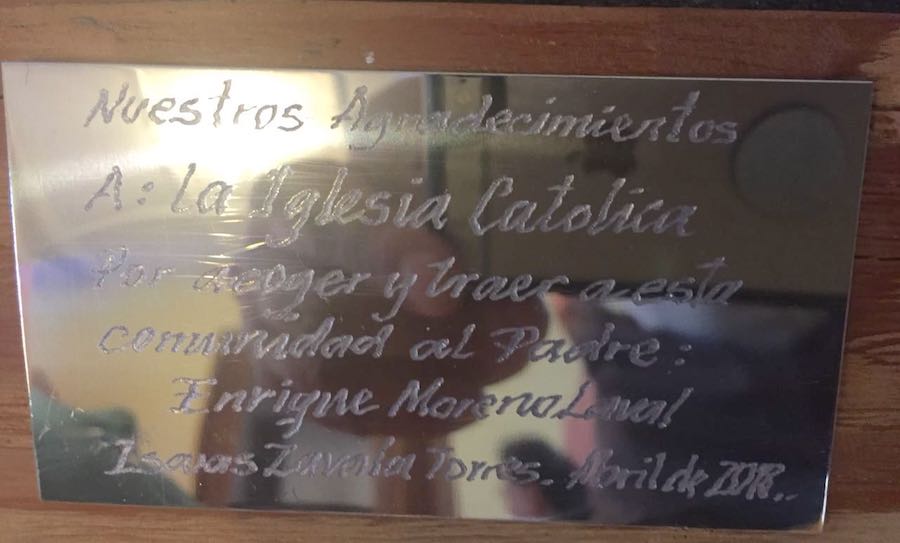 Nuestros Agradecimientos
A: La Iglesia Catolica
Por acoger y traer a esta
comunidad al Padre:
Enrique Moreno Laval
Isaias Zavala Torres. Abril de, 2018..